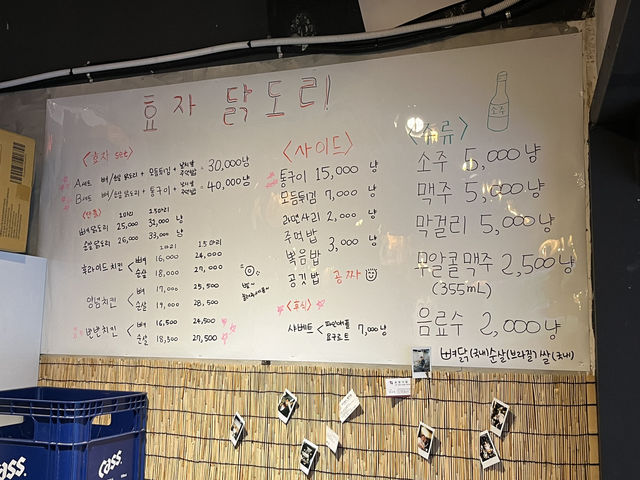 효자 닭도리
<효자 set>
A세트 뼈/순살 닭도리 + 모둠튀김 + 날치알 주먹밥 = 30,000냥
B세트 뼈/순살 닭도리 + 통구이 + 날치알 주먹밥 = 40,000냥
<단품> 1마리 1.5마리
뼈닭도리 25,000 32,000 냥
순살닭도리 26,000 33,000 냥
1마리 1.5마리
후라이드치킨 < 뼈 16,000 24,000
순살 18,000 27,000
양념치킨 < 뼈 17,000 25,500
순살 19,000 28,500
반반치킨 < 뼈 16,500 24,500
순살 18,500 27,500
<사이드>
통구이 15,000 냥
모듬튀김 7,000 냥
라면사리 2,000 냥
주먹밥
볶음밥 3,000 냥
공깃밥 공짜
<후식>
샤베트 < 파인애플 요구르트 7,000냥
<주류>
소주
소주 5,000냥
맥주 5,000냥
막걸리 5,000냥
무알콜맥주 2,500냥
(355mL)
음료수 2,000냥
뼈닭(국내) 순살(브라질) 쌀(국내)
cass.
cass.